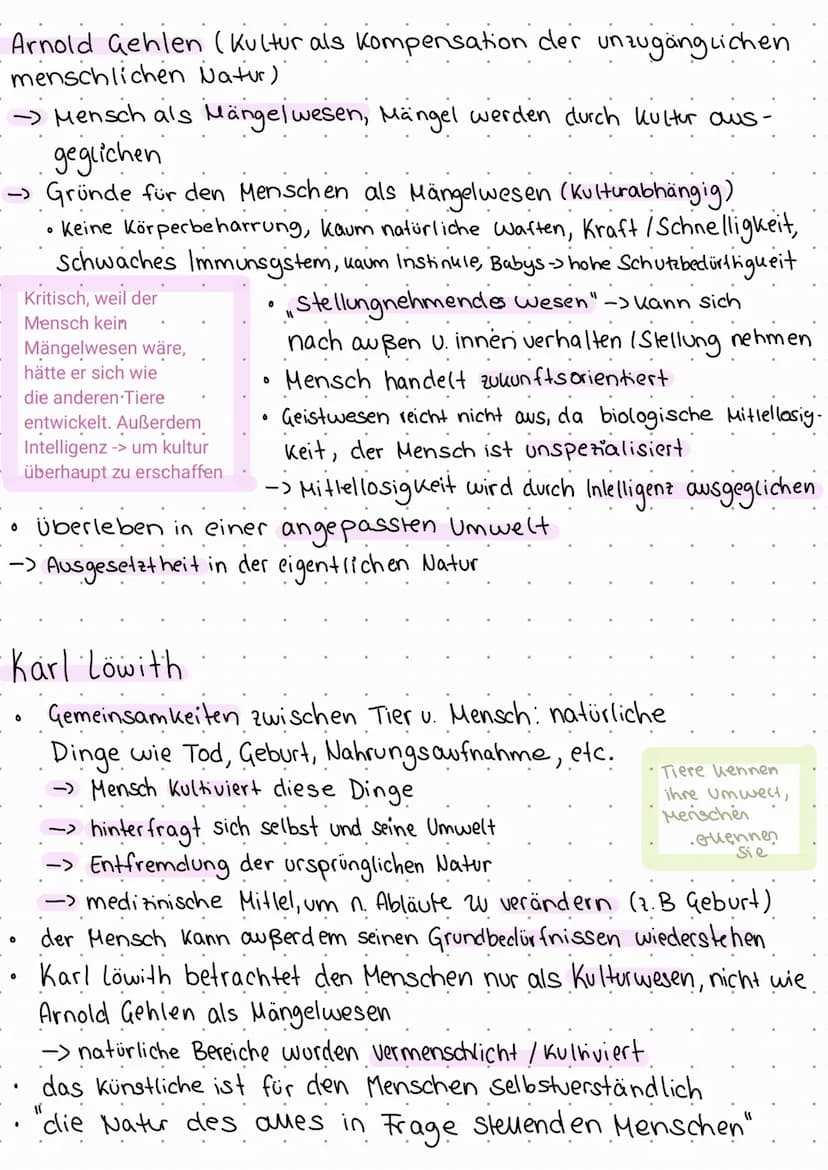 Arnold Gehlen (Kultur als Kompensation der unzugänglichen
menschlichen Natur)
-> Mensch als Mängelwesen, Mängel werden durch Kultur aus-
geglichen
-> Gründe für den Menschen als Mängelwesen (Kulturabhängig)
• Keine Körperbeharrung, kaum natürliche Waffen, Kraft / Schnelligkeit,
Schwaches Immunsystem, kaum Instinkte, Babys -> hohe Schutzbedürftigkeit
Kritisch, weil der
Mensch kein
Mängelwesen wäre,
hätte er sich wie
die anderen Tiere
entwickelt. Außerdem
Intelligenz -> um kultur
überhaupt zu erschaffen
• „Stellungnehmendes Wesen" -> kann sich
nach außen u. innen verhalten / Stellung nehmen
• Mensch handelt zukunftsorientiert
• Geistwesen reicht nicht aus, da biologische Mittellosig-
keit, der Mensch ist unspezialisiert
-> Mittellosigkeit wird durch Intelligenz ausgeglichen
• überleben in einer angepassten Umwelt
-> Ausgesetztheit in der eigentlichen Natur
Karl Löwith
• Gemeinsamkeiten zwischen Tier u. Mensch: natürliche
Dinge wie Tod, Geburt, Nahrungsaufnahme, etc.
-> Mensch kultiviert diese Dinge
-> hinterfragt sich selbst und seine Umwelt
-> Entfremdung der ursprünglichen Natur
-> medizinische Mittel, um n. Abläufe zu verändern (z.B Geburt)
Tiere kennen
ihre Umwelt,
Menschen
erkennen
sie
• der Mensch kann außerdem seinen Grundbedürfnissen wiederstehen
• Karl Löwith betrachtet den Menschen nur als Kulturwesen, nicht wie
Arnold Gehlen als Mängelwesen
-> natürliche Bereiche wurden vermenschlicht / kultiviert
• das künstliche ist für den Menschen selbstverständlich
• "die Natur des alles in Frage stellenden Menschen"